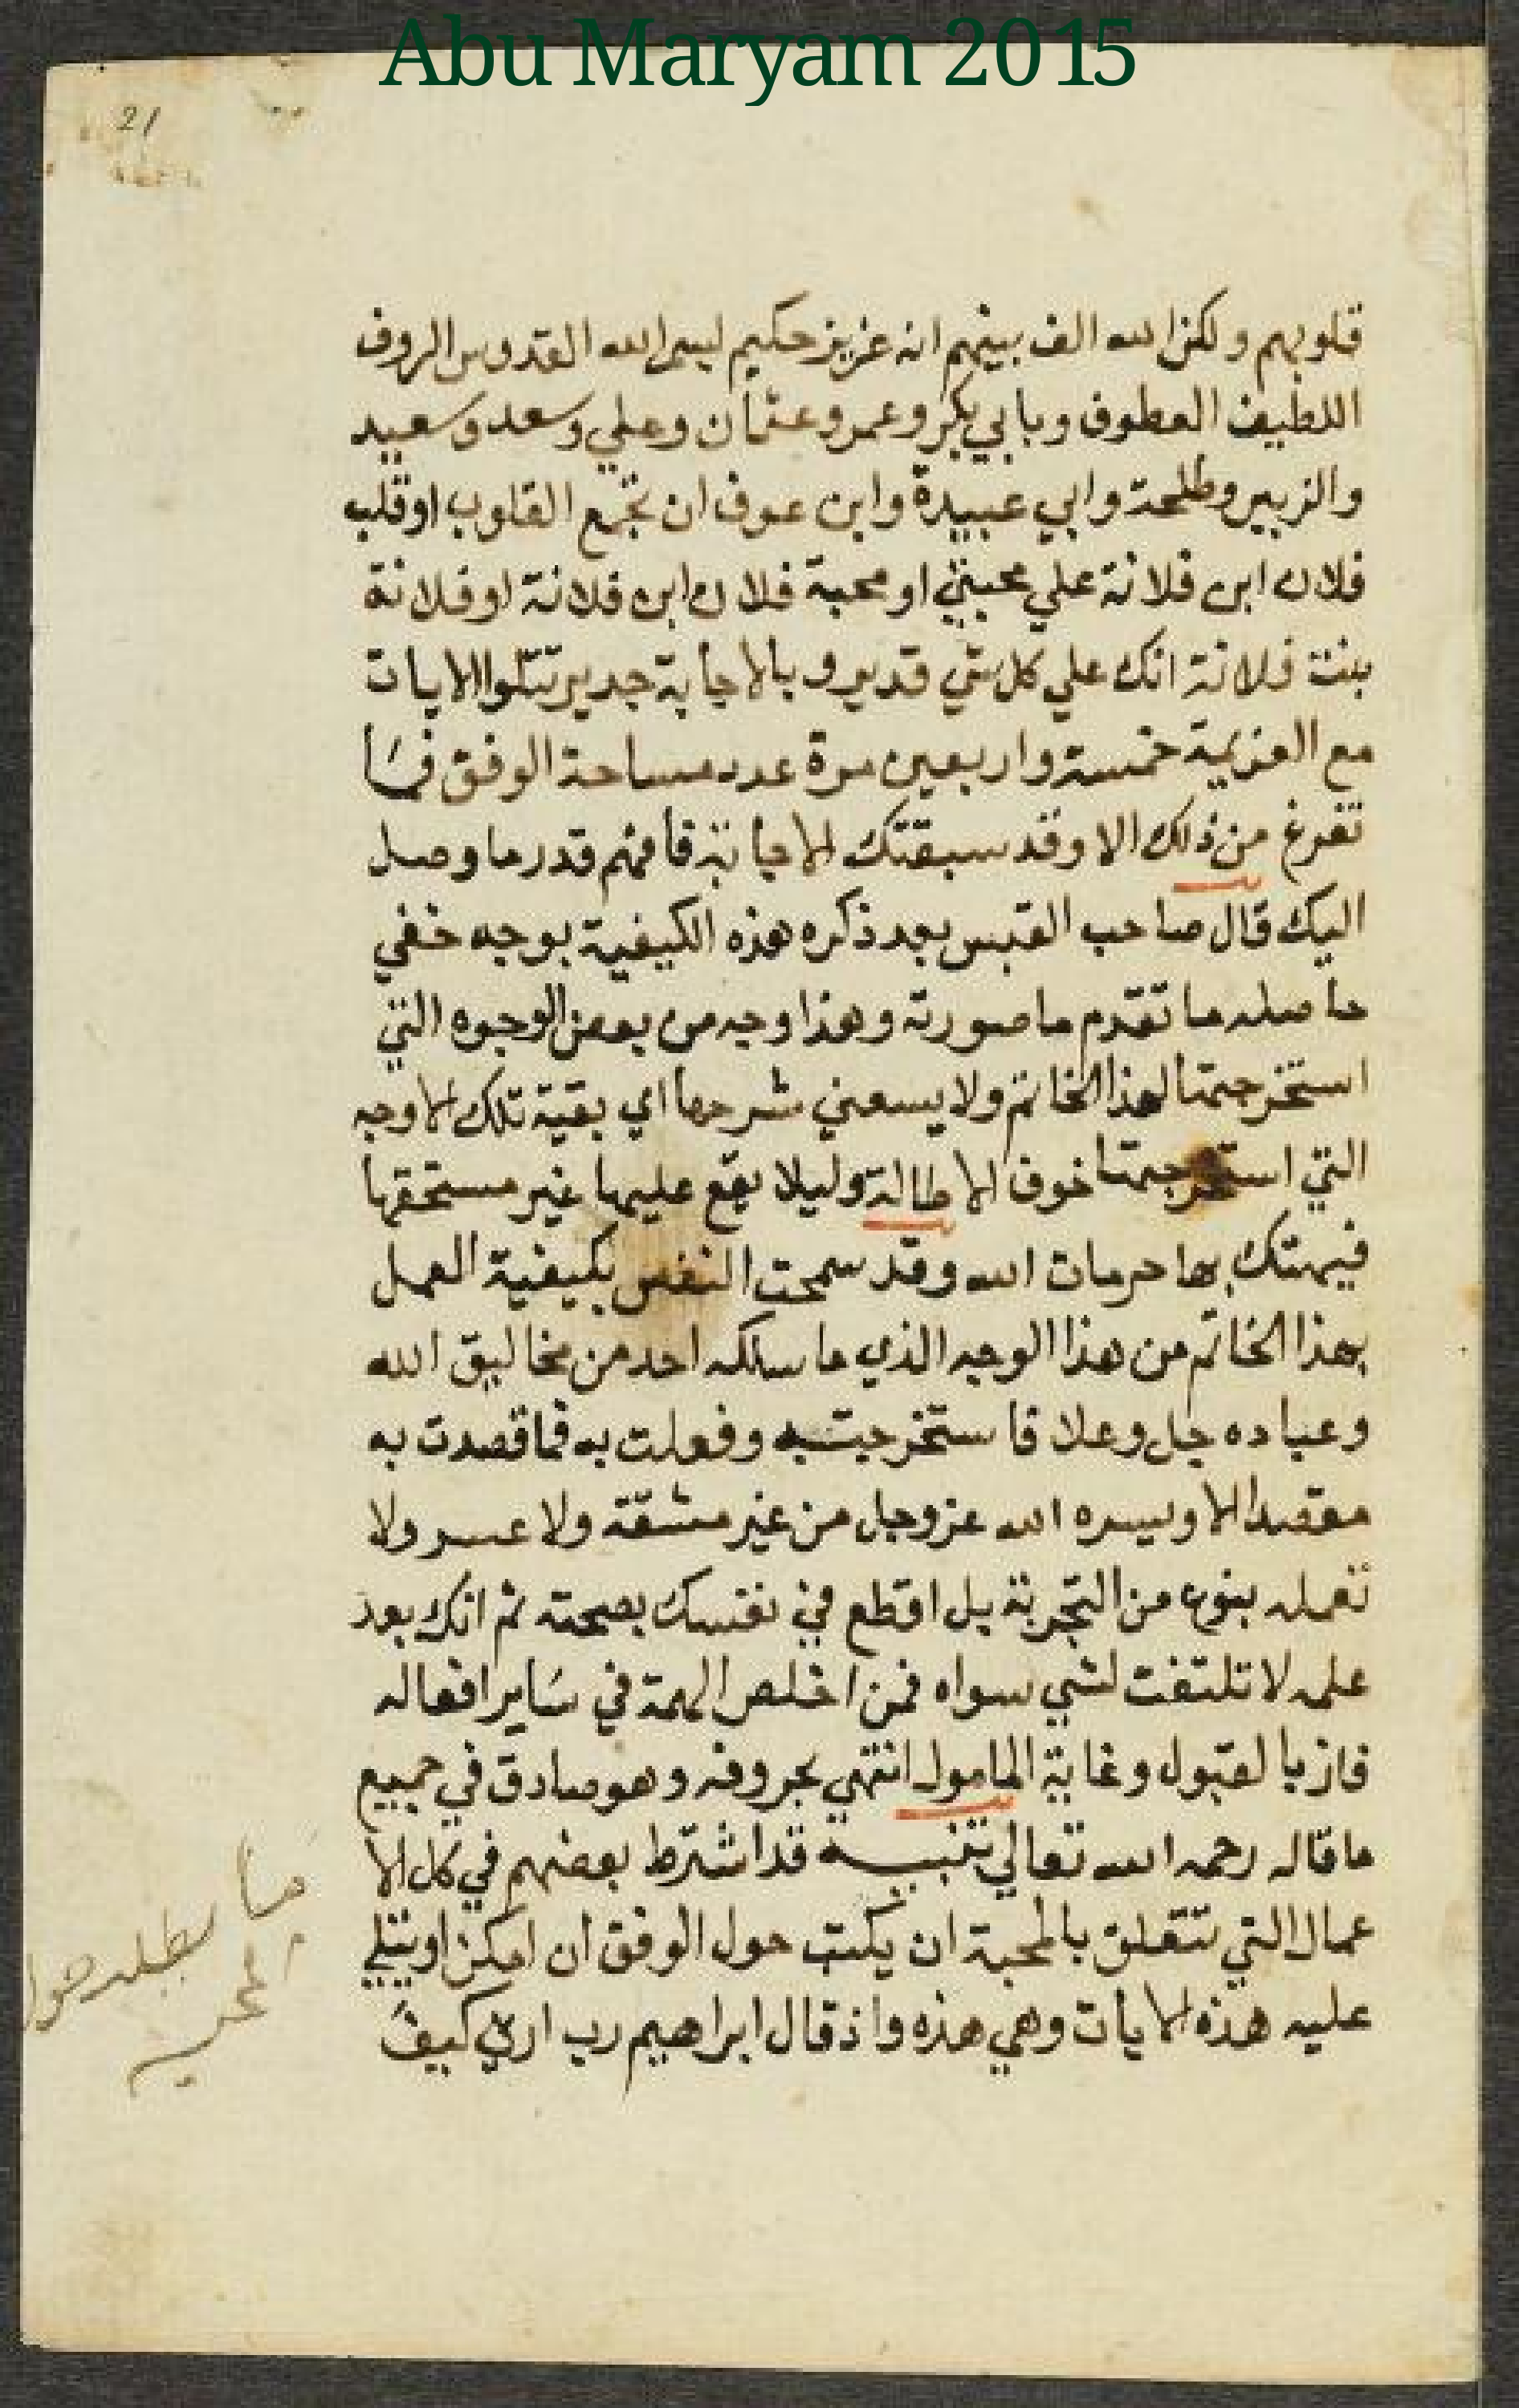 Abu Maryam 2015
21
قلوبهم ولكن الله الف بينهم انه عزيز حكيم ليس الله القدوس الروف
اللطيف العطوف وبابي بكر وعمر وعثمان وعلي وسعد وسعيد
والزبير وطلحة وابي عبيدة وابن عوف ان تجمع القلوب او قلب
فلان ابن فلانة علي محبتي او محبة فلان ابن فلانة او فلانة
بنت فلانة انك علي كل شي قدير وبالاجابة جدير تتلوا الايات
مع العزيمة خمسة واربعين مرة عدد مساحة الوفق فما
تفرغ من ذلك الا وقد سبقتك الاجابة فافهم قدر ما وصل
اليك قال صاحب القبس بعد ذكره هذه الكيفية بوجه خفي
حاصله ما تقدم ما صورته وهذا وجه من بعض الوجوه التي
استخرجتها لهذا الخاتم ولا يسعني شرحها اي بقية تلك الاوجه
التي استخرجتها خوف الاطالة وليلا يقع عليها غير مستحقها
فيهتك بها حرمات الله وقد سمحت النفس بكيفية العمل
بهذا الخاتم من هذا الوجه الذي ما سلكه احد من مخاليق الله
وعباده جل وعلا فاستخرجته وفعلت به فما قصدت به
مقصدا الا ويسره الله عز وجل من غير مشقة ولا عسر ولا
تعمله بنوع من التجربة بل اقطع في نفسك بصحته ثم انك بعد
علمه لا تلتفت لشي سواه فمن اخلص الهمة في ساير افعاله
فاز بالقبول وغاية المامول انتهي بحروفه وهو صادق في جميع
ما قاله رحمه الله تعالي تنبيه قد اشترط بعضهم في كل الا
عمال التي تتعلق بالمحبة ان يكتب حول الوفق ان امكن او يتلي
عليه هذه الايات وهي هذه واذ قال ابراهيم رب ارني كيف